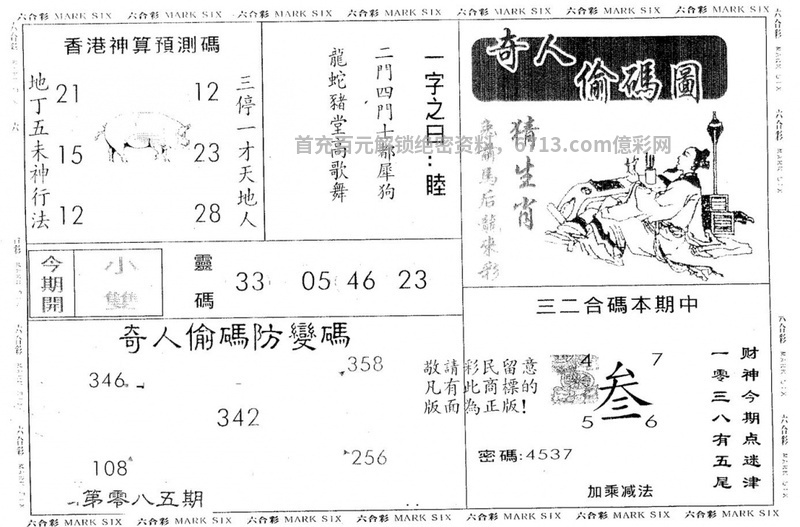 六合彩 MARK SIX 六合彩 MARK SIX 六合彩 MARK SIX 六合彩 MARK SIX 六合彩 MARK SIX 六合彩 MARK SIX 六合彩 MARK SIX
香港神算預測碼
地丁五未神行法
21
12
15
23
12
28
三停一才天地人
一字之曰:睦
二門四門士鄰犀狗
龍蛇豬堂高歌舞
奇人偷碼圖
猜生肖
首充百元解锁绝密资料,6713.com億彩网
今期開
小雙
靈碼
33 05 46 23
奇人偷碼防變碼
346
358
342
108
256
第零八五期
敬請彩民留意
凡有此商標的
版面為正版!
三二合碼本期中
4 7
叁
5 6
密碼:4537
加乘减法
财神今期点迷津
一零三八有五尾
六合彩 MARK SIX 六合彩 MARK SIX 六合彩 MARK SIX 六合彩 MARK SIX 六合彩 MARK SIX 六合彩 MARK SIX 六合彩 MARK SIX